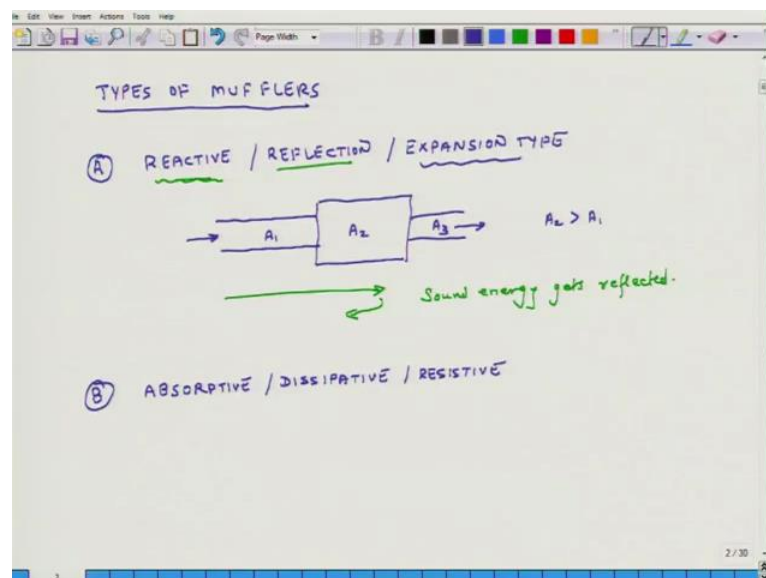 File Edit View Insert Actions Tools Help
Page Width
B I
TYPES OF MUFFLERS
A REACTIVE / REFLECTION / EXPANSION TYPE
A1 A2 A3 A2 > A1
Sound energy gets reflected.
B ABSORPTIVE / DISSIPATIVE / RESISTIVE
2 / 30